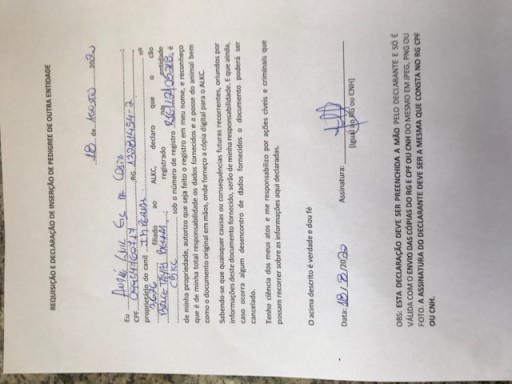 REQUISIÇÃO E DECLARAÇÃO DE INSERÇÃO DE PEDIGREE DE OUTRA ENTIDADE
18 de Agosto 2020
Eu
CPF. RG.
proprietário do canil nº
filiado ao ALKC, declaro que o cão
registrado na entidade
CBKC sob o número de registro é
de minha propriedade, autorizo que seja feito o registro em meu nome, e reconheço
que é de minha total responsabilidade os dados fornecidos e a posse do animal bem
como o documento original em mãos, onde forneço a cópia digital para o ALKC.
Sabendo-se que quaisquer causas ou consequências futuras recorrentes, oriundos por
informações deste documento fornecido, serão de minha responsabilidade. E que ainda,
caso ocorra algum desencontro de dados fornecidos, o documento poderá ser
cancelado.
Tenho ciência dos meus atos e me responsabilizo por ações cíveis e criminais que
possam recorrer sobre as informações aqui declaradas.
O acima descrito é verdade e dou fé
Data: 18/8/2020 Assinatura:
(Igual do RG ou CNH)
OBS: ESTA DECLARAÇÃO DEVE SER PREENCHIDA A MÃO PELO DECLARANTE E SÓ É
VÁLIDA COM O ENVIO DAS CÓPIAS DO RG E CPF OU CNH DO MESMO EM JPEG, PNG OU
FOTO. A ASSINATURA DO DECLARANTE DEVE SER A MESMA QUE CONSTA NO RG CPF
OU CNH.